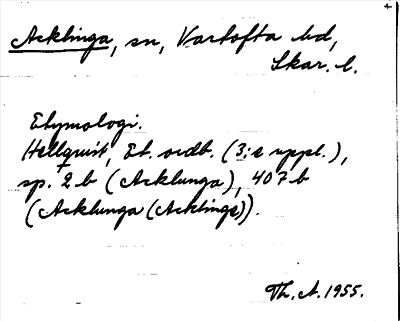 Acklinga, sn, Vartofta hd,
Skar. l.
Etymologi.
Hellquist, Et. ordb. (3:e uppl.),
sp. 2 b (Acklunga), 407 b
(Acklunga (Acklinge)).
Th. A. 1955.